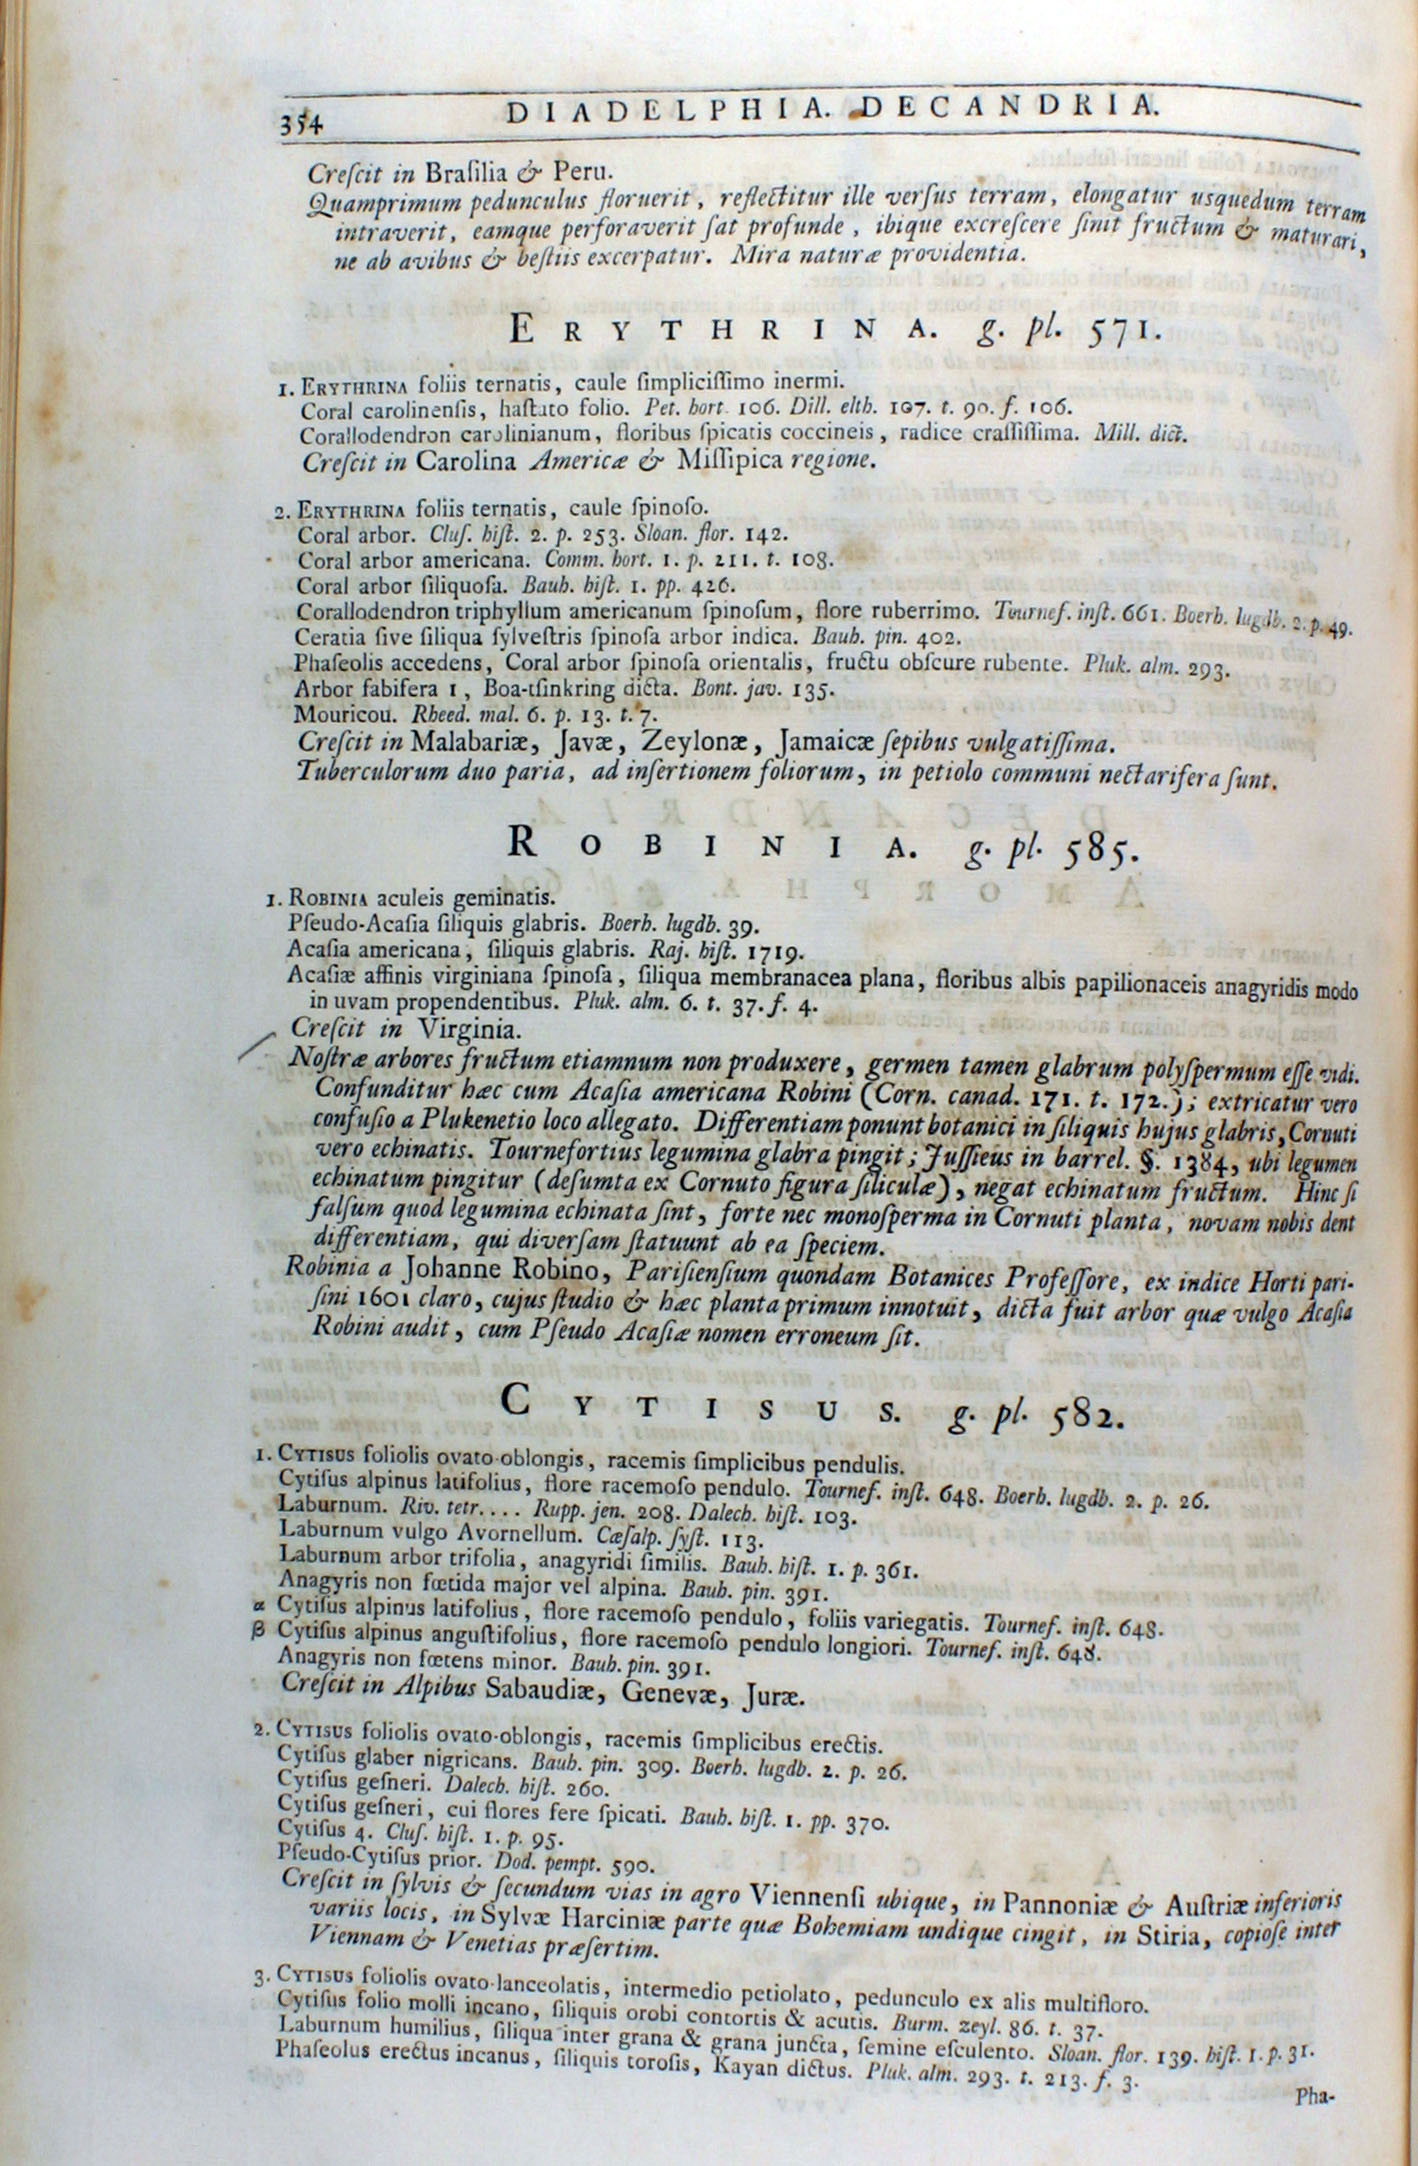 354
DIADELPHIA. DECANDRIA.
Creſcit in Braſilia & Peru.
Quamprimum pedunculus floruerit, reflectitur ille verſus terram, elongatur usquedum terram
intraverit, eamque perforaverit ſat profunde, ibique excreſcere ſinit fructum & maturari,
ne ab avibus & beſtiis excerpatur. Mira naturæ providentia.
ERYTHRINA. g. pl. 571.
1. ERYTHRINA foliis ternatis, caule ſimpliciſſimo inermi.
Coral carolinenſis, haſtato folio. Pet. hort. 106. Dill. elth. 107. t. 90. f. 106.
Corallodendron carolinianum, floribus ſpicatis coccineis, radice craſſiſſima. Mill. dict.
Creſcit in Carolina Americæ & Miſſipica regione.
2. ERYTHRINA foliis ternatis, caule ſpinoſo.
Coral arbor. Cluſ. hiſt. 2. p. 253. Sloan. flor. 142.
Coral arbor americana. Comm. hort. 1. p. 211. t. 108.
Coral arbor ſiliquoſa. Bauh. hiſt. 1. pp. 426.
Corallodendron triphyllum americanum ſpinoſum, flore ruberrimo. Tournef. inſt. 661. Boerh. lugdb. 2. p. 49.
Ceratia ſive ſiliqua ſylveſtris ſpinoſa arbor indica. Bauh. pin. 402.
Phaſeolis accedens, Coral arbor ſpinoſa orientalis, fructu obſcure rubente. Pluk. alm. 293.
Arbor fabifera 1, Boa-tſinkring dicta. Bont. jav. 135.
Mouricou. Rheed. mal. 6. p. 13. t. 7.
Creſcit in Malabariæ, Javæ, Zeylonæ, Jamaicæ ſepibus vulgatiſſima.
Tuberculorum duo paria, ad inſertionem foliorum, in petiolo communi nectarifera ſunt.
ROBINIA. g. pl. 585.
1. ROBINIA aculeis geminatis.
Pſeudo-Acaſia ſiliquis glabris. Boerh. lugdb. 39.
Acaſia americana, ſiliquis glabris. Raj. hiſt. 1719.
Acaſiæ affinis virginiana ſpinoſa, ſiliqua membranacea plana, floribus albis papilionaceis anagyridis modo
in uvam propendentibus. Pluk. alm. 6. t. 37. f. 4.
Creſcit in Virginia.
Noſtræ arbores fructum etiamnum non produxere, germen tamen glabrum polyſpermum eſſe vidi.
Confunditur hæc cum Acaſia americana Robini (Corn. canad. 171. t. 172.); extricatur vero
confuſio a Plukenetio loco allegato. Differentiam ponunt botanici in ſiliquis hujus glabris, Cornuti
vero echinatis. Tournefortius legumina glabra pingit; Juſſieus in barrel. §. 1384, ubi legumen
echinatum pingitur (deſumta ex Cornuto figura ſiliculæ), negat echinatum fructum. Hinc ſi
falſum quod legumina echinata ſint, forte nec monoſperma in Cornuti planta, novam nobis dent
differentiam, qui diverſam ſtatuunt ab ea ſpeciem.
Robinia a Johanne Robino, Pariſienſium quondam Botanices Profeſſore, ex indice Horti pari-
ſini 1601 claro, cujus ſtudio & hæc planta primum innotuit, dicta fuit arbor quæ vulgo Acaſia
Robini audit, cum Pſeudo Acaſiæ nomen erroneum ſit.
CYTISUS. g. pl. 582.
1. CYTISUS foliolis ovato-oblongis, racemis ſimplicibus pendulis.
Cytiſus alpinus latifolius, flore racemoſo pendulo. Tournef. inſt. 648. Boerh. lugdb. 2. p. 26.
Laburnum. Riv. tetr. . . . Rupp. jen. 208. Dalech. hiſt. 103.
Laburnum vulgo Avornellum. Cæſalp. ſyſt. 113.
Laburnum arbor trifolia, anagyridi ſimilis. Bauh. hiſt. 1. p. 361.
Anagyris non fœtida major vel alpina. Bauh. pin. 391.
α Cytiſus alpinus latifolius, flore racemoſo pendulo, foliis variegatis. Tournef. inſt. 648.
β Cytiſus alpinus anguſtifolius, flore racemoſo pendulo longiori. Tournef. inſt. 648.
Anagyris non fœtens minor. Bauh. pin. 391.
Creſcit in Alpibus Sabaudiæ, Genevæ, Juræ.
2. CYTISUS foliolis ovato-oblongis, racemis ſimplicibus erectis.
Cytiſus glaber nigricans. Bauh. pin. 309. Boerh. lugdb. 2. p. 26.
Cytiſus geſneri. Dalech. hiſt. 260.
Cytiſus geſneri, cui flores fere ſpicati. Bauh. hiſt. 1. pp. 370.
Cytiſus 4. Cluſ. hiſt. 1. p. 95.
Pſeudo-Cytiſus prior. Dod. pempt. 590.
Creſcit in ſylvis & ſecundum vias in agro Viennenſi ubique, in Pannoniæ & Auſtriæ inferioris
variis locis, in Sylvæ Harciniæ parte quæ Bohemiam undique cingit, in Stiria, copioſe inter
Viennam & Venetias præſertim.
3. CYTISUS foliolis ovato-lanceolatis, intermedio petiolato, pedunculo ex alis multifloro.
Cytiſus folio molli incano, ſiliquis orobi contortis & acutis. Burm. zeyl. 86. t. 37.
Laburnum humilius, ſiliqua inter grana & grana juncta, ſemine eſculento. Sloan. flor. 139. hiſt. 1. p. 31.
Phaſeolus erectus incanus, ſiliquis toroſis, Kayan dictus. Pluk. alm. 293. t. 213. f. 3.
Pha-